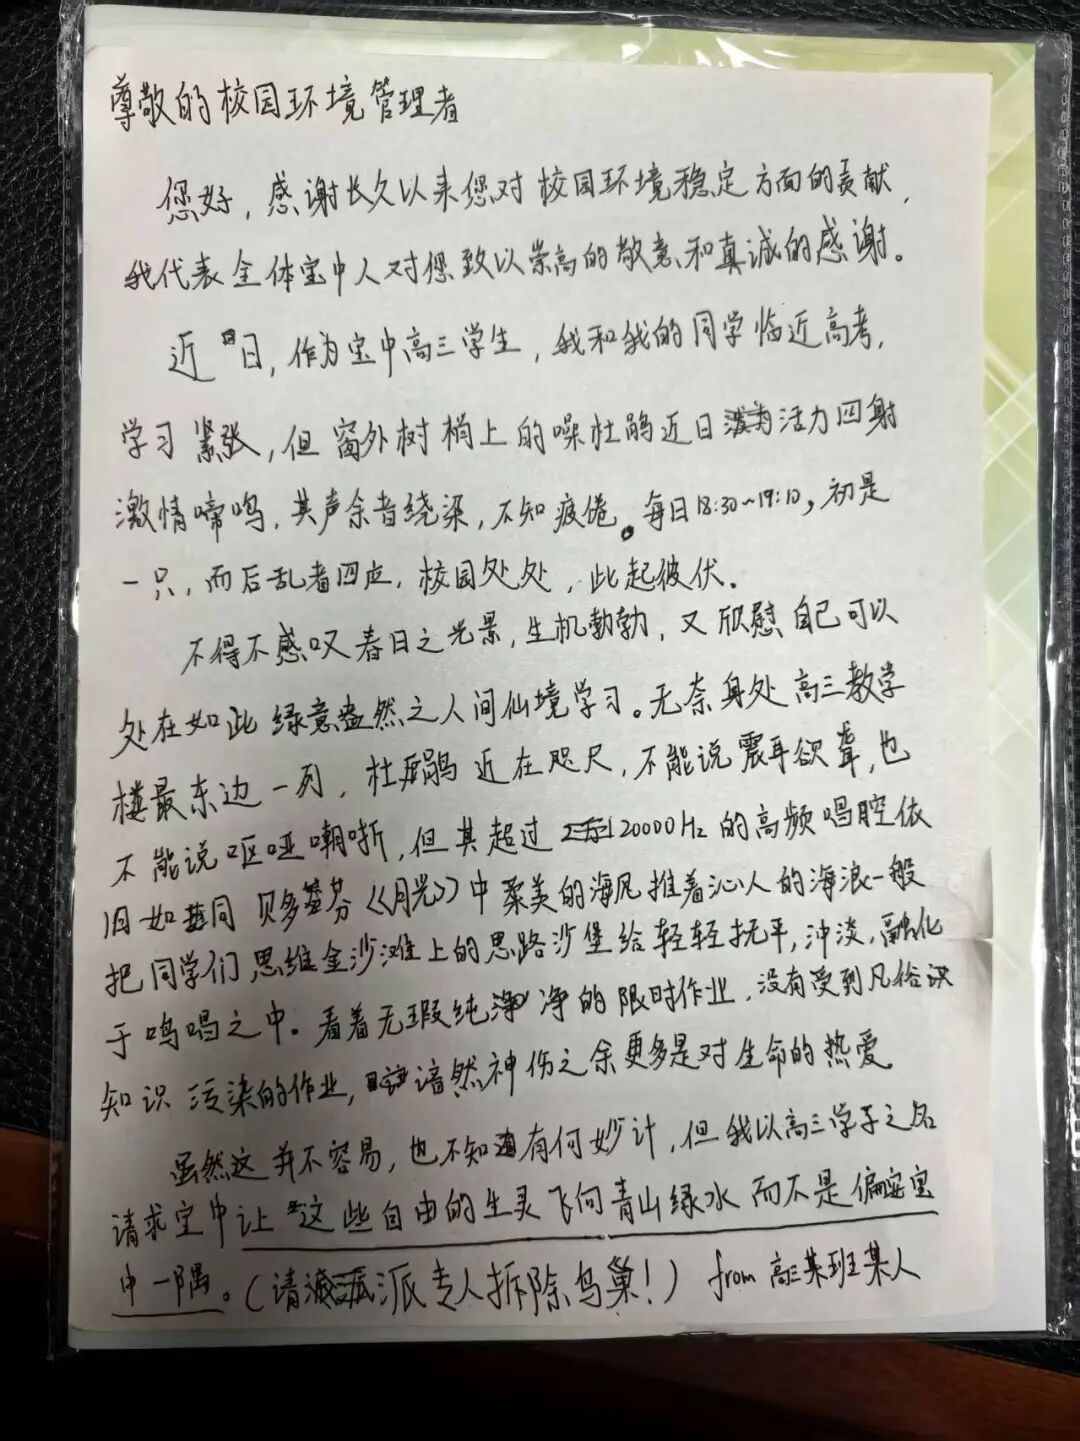 尊敬的校园环境管理者
您好，感谢长久以来您对校园环境稳定方面的贡献，
我代表全体宝中人对您致以崇高的敬意和真诚的感谢。
近日，作为宝中高三学生，我和我的同学临近高考，
学习紧张，但窗外树梢上的噪杜鹃近日活力四射
激情啼鸣，其声余音绕梁，不知疲倦。每日18:30~19:10，初是
一只，而后乱者四应，校园处处，此起彼伏。
不得不感叹春日之光景，生机勃勃，又欣慰自己可以
处在如此绿意盎然之人间仙境学习。无奈身处高三教学
楼最东边一列，杜鹃近在咫尺，不能说震耳欲聋，也
不能说呕哑嘲哳，但其超过20000Hz的高频唱腔依
旧如同贝多芬《月光》中柔美的海风推着沁人的海浪一般
把同学们思维金沙滩上的思路沙堡给轻轻抚平，冲淡，融化
于鸣唱之中。看着无瑕纯净的限时作业，没有受到凡俗识
知识污染的作业，谙然神伤之余更多是对生命的热爱
虽然这并不容易，也不知有何妙计，但我以高三学子之名
请求宝中让这些自由的生灵飞向青山绿水而不是偏安宝
中一隅。（请派专人拆除鸟巢！） from 高三某班某人